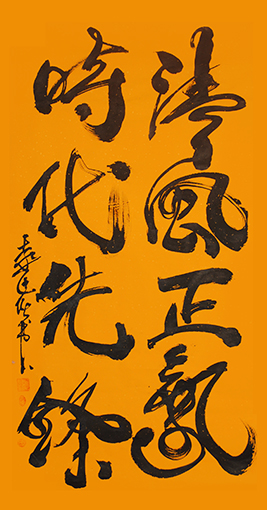 清風正氣
時代先鋒